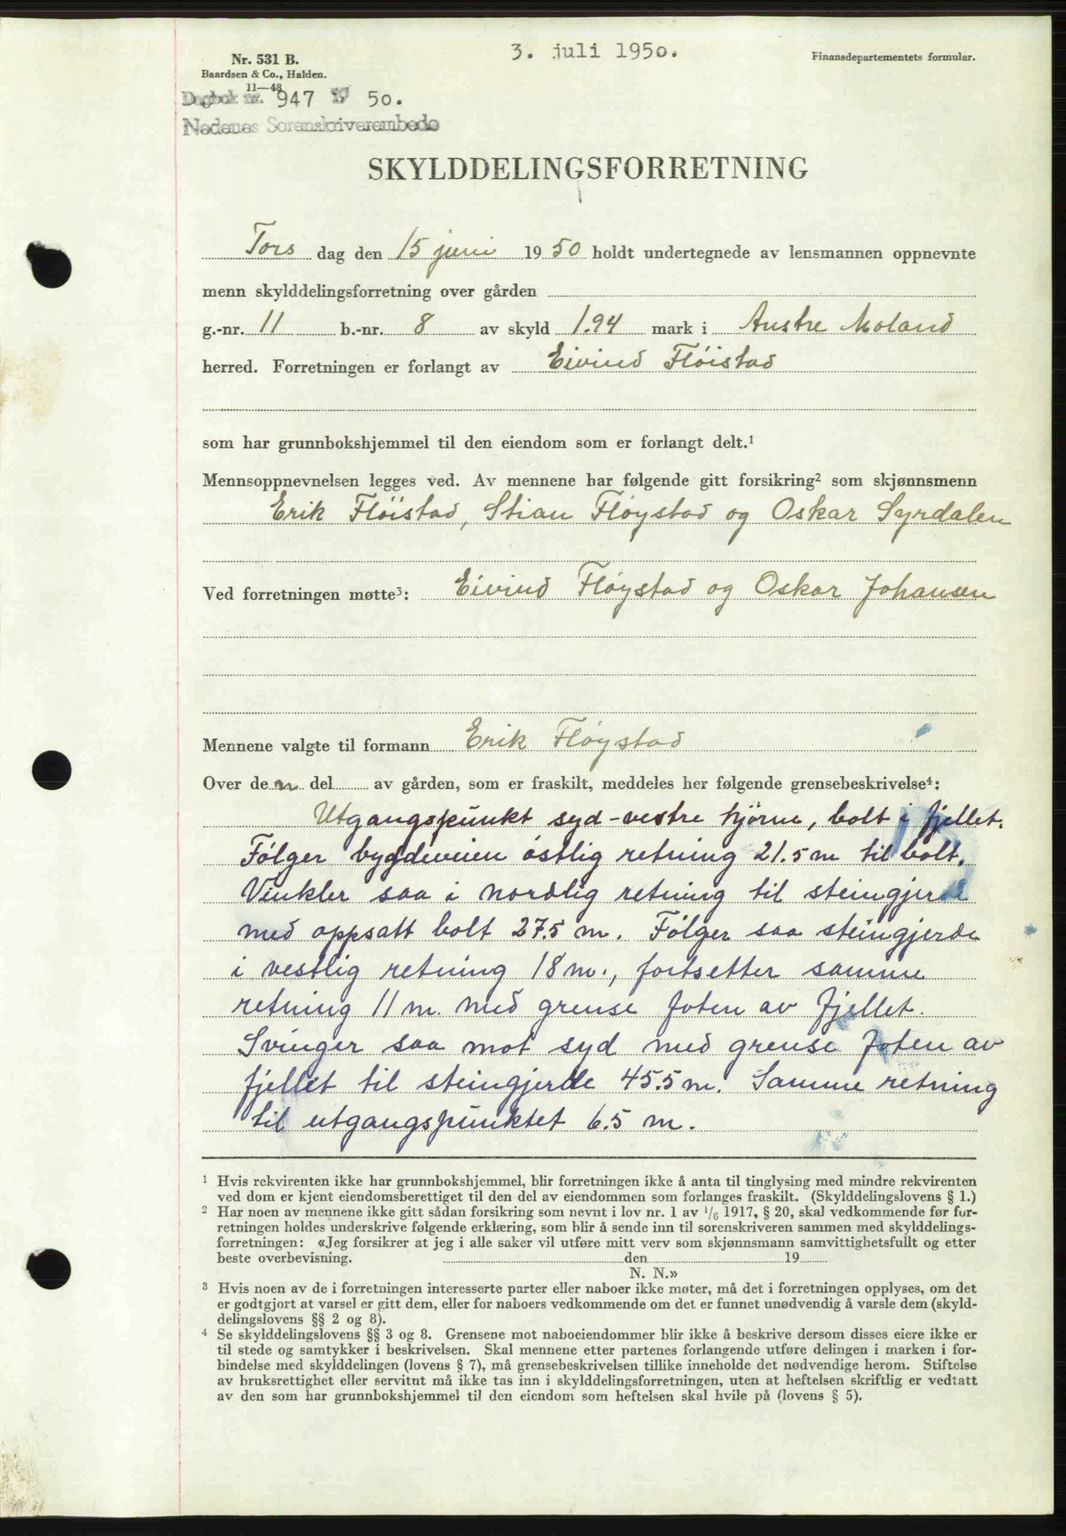 3. juli 1950.
Nr. 531 B.
Baardsen & Co., Halden.
11—48
Finansdepartementets formular.
Dagbok nr. 947 19 50.
Nedenes Sorenskriverembede
SKYLDDELINGSFORRETNING
Tors dag den 15 juni 1950 holdt undertegnede av lensmannen oppnevnte
menn skylddelingsforretning over gården
g.-nr. 11 b.-nr. 8 av skyld 1.94 mark i Austre Moland
herred. Forretningen er forlangt av Eivind Flöistad
som har grunnbokshjemmel til den eiendom som er forlangt delt.¹
Mennsoppnevnelsen legges ved. Av mennene har følgende gitt forsikring² som skjønnsmenn
Erik Flöistad, Stian Fløystad og Oskar Syrdalen
Ved forretningen møtte³: Eivind Fløystad og Oskar Johansen
Mennene valgte til formann Erik Fløystad
Over den del av gården, som er fraskilt, meddeles her følgende grensebeskrivelse⁴:
Utgangspunkt syd-vestre hjörne, bolt i fjellet.
Følger bygdeveien östlig retning 21.5 m til bolt.
Vinkler saa i nordlig retning til steingjerde
med oppsatt bolt 27.5 m. Følger saa steingjerde
i vestlig retning 18 m., fortsetter samme
retning 11 m. med grense foten av fjellet.
Svinger saa mot syd med grense foten av
fjellet til steingjerde 45.5 m. Samme retning
til utgangspunktet 6.5 m.
¹ Hvis rekvirenten ikke har grunnbokshjemmel, blir forretningen ikke å anta til tinglysing med mindre rekvirenten
ved dom er kjent eiendomsberettiget til den del av eiendommen som forlanges fraskilt. (Skylddelingslovens § 1.)
² Har noen av mennene ikke gitt sådan forsikring som nevnt i lov nr. 1 av 1/6 1917, § 20, skal vedkommende før for-
retningen holdes underskrive følgende erklæring, som blir å sende inn til sorenskriveren sammen med skylddelings-
forretningen: «Jeg forsikrer at jeg i alle saker vil utføre mitt verv som skjønnsmann samvittighetsfullt og etter
beste overbevisning. den 19
N. N.»
³ Hvis noen av de i forretningen interesserte parter eller naboer ikke møter, må det i forretningen opplyses, om det
er godtgjort at varsel er gitt dem, eller for naboers vedkommende om det er funnet unødvendig å varsle dem (skyld-
delingslovens §§ 2 og 8).
⁴ Se skylddelingslovens §§ 3 og 8. Grensene mot naboeiendommer blir ikke å beskrive dersom disses eiere ikke er
til stede og samtykker i beskrivelsen. Skal mennene etter partenes forlangende utføre delingen i marken i for-
bindelse med skylddelingen (lovens § 7), må grensebeskrivelsen tillike inneholde det nødvendige herom. Stiftelse
av bruksrettighet eller servitut må ikke tas inn i skylddelingsforretningen, uten at heftelsen skriftlig er vedtatt
av den som har grunnbokshjemmel til den eiendom som heftelsen skal hvile på (lovens § 5).